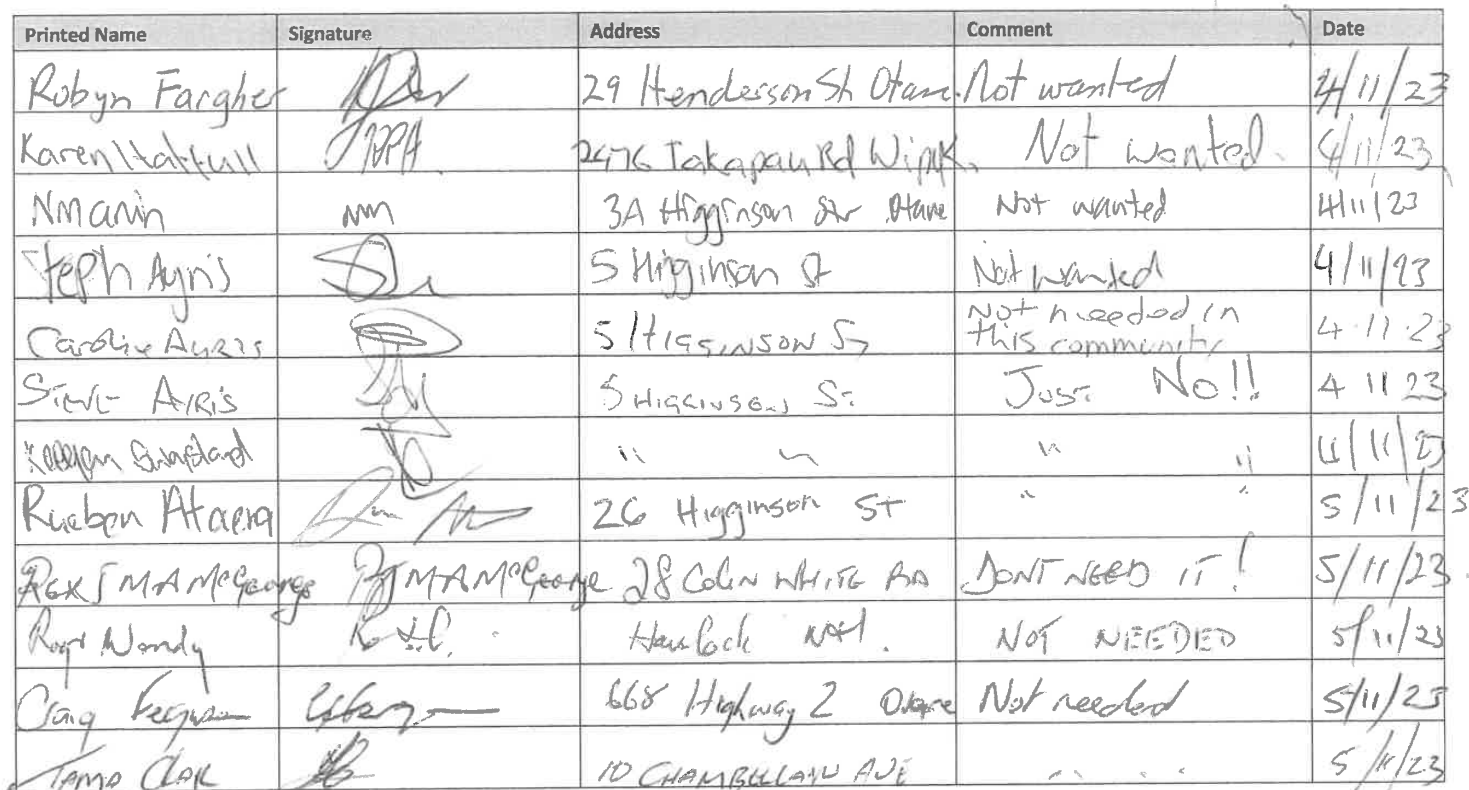 Printed Name Signature Address Comment Date
Robyn Fargher 29 Henderson St Otane. Not wanted 4/11/23
Karen Hatfull 2476 Takapau Rd Wipuk. Not wanted. 4/11/23
Nmanin NM 3A Higginson Str Otane Not wanted 4/11/23
Steph Ayris 5 Higginson St Not wanted 4/11/23
Caroline Ayris 5 Higginson St Not needed in
this community 4.11.23
Steve Ayris 5 Higginson St. Just No!! 4 11 23
" " " " 4/11/23
Rueben Ataera 26 Higginson ST " " 5/11/23
Rex J MAMcGeorge RJ MAMcGeorge 28 Colin WHITE RD DONT NEED IT! 5/11/23
Havelock Nth. NOT NEEDED 5/11/23
Craig Ferguson 668 Highway 2 Otane Not needed 5/11/23
Clark 10 CHAMBERLAIN AVE " " 5/11/23